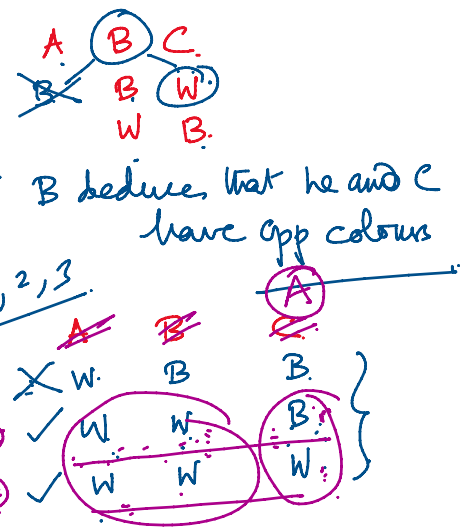 A B C.
B B W
W B.
B deduces that he and C
have opp colours
, 2, 3
A
A B C
X W. B B.
✓ W W B
✓ W W W